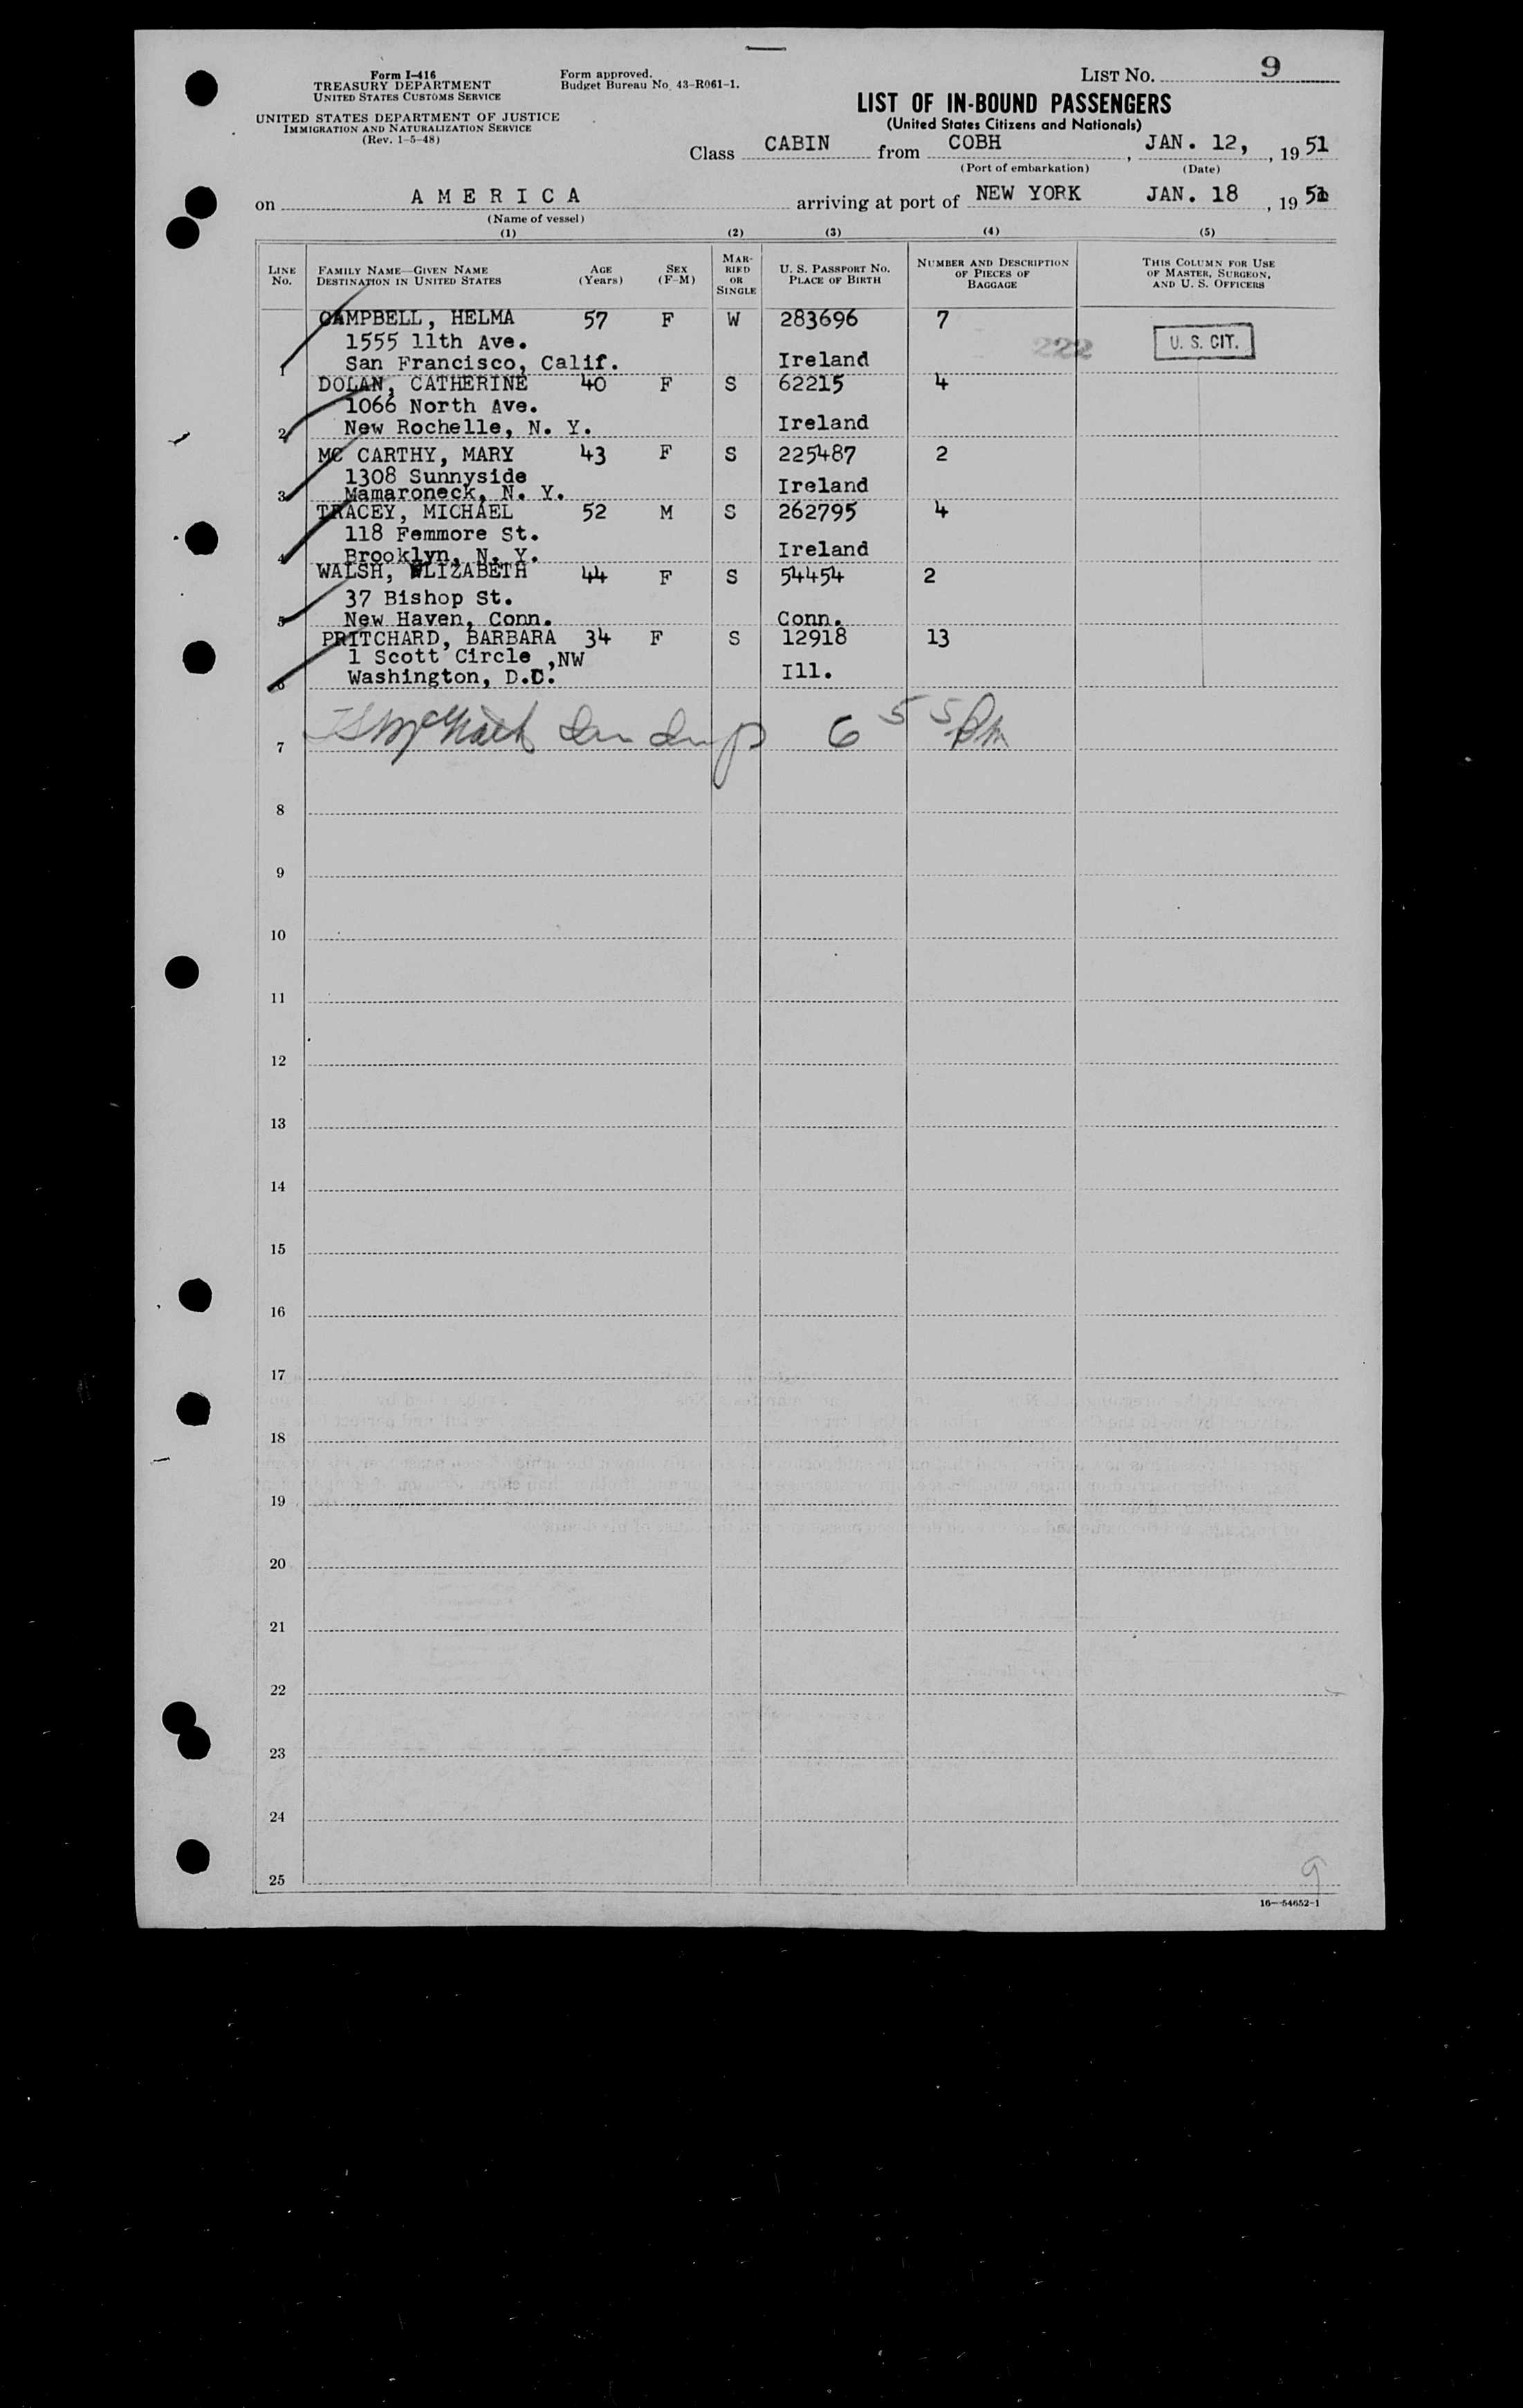 Form I-416
TREASURY DEPARTMENT
UNITED STATES CUSTOMS SERVICE
UNITED STATES DEPARTMENT OF JUSTICE
IMMIGRATION AND NATURALIZATION SERVICE
(Rev. 1-5-48)
Form approved.
Budget Bureau No. 43-R061-1.
LIST No. 9
LIST OF IN-BOUND PASSENGERS
(United States Citizens and Nationals)
Class CABIN from COBH, JAN. 12, , 19 51
(Port of embarkation) (Date)
on A M E R I C A arriving at port of NEW YORK JAN. 18 , 19 51
(Name of vessel)
(1) (2) (3) (4) (5)
LINE No. FAMILY NAME—GIVEN NAME DESTINATION IN UNITED STATES AGE (Years) SEX (F-M) MARRIED OR SINGLE U. S. PASSPORT NO. PLACE OF BIRTH NUMBER AND DESCRIPTION OF PIECES OF BAGGAGE THIS COLUMN FOR USE OF MASTER, SURGEON, AND U. S. OFFICERS
CAMPBELL, HELMA 57 F W 283696 7
1555 11th Ave. 222 U. S. CIT.
1 San Francisco, Calif. Ireland
DOLAN, CATHERINE 40 F S 62215 4
1066 North Ave.
2 New Rochelle, N. Y. Ireland
MC CARTHY, MARY 43 F S 225487 2
1308 Sunnyside
3 Mamaroneck, N. Y. Ireland
TRACEY, MICHAEL 52 M S 262795 4
118 Femmore St.
4 Brooklyn, N. Y. Ireland
WALSH, ELIZABETH 44 F S 54454 2
37 Bishop St.
5 New Haven, Conn. Conn.
PRITCHARD, BARBARA 34 F S 12918 13
1 Scott Circle ,NW
6 Washington, D.C. Ill.
7 6 55 Pm
8
9
10
11
12
13
14
15
16
17
18
19
20
21
22
23
24
25
9
16—54652-1